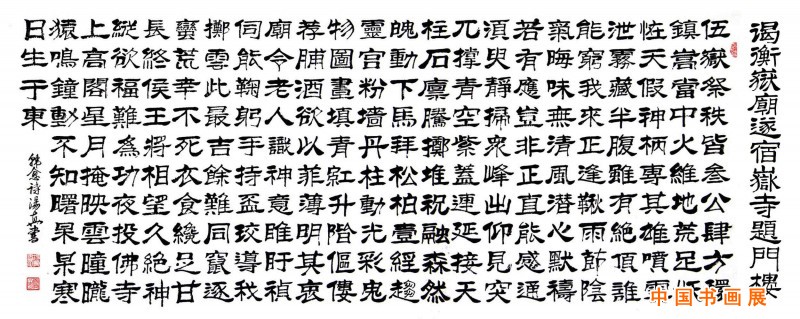 谒衡嶽廟遂宿嶽寺題門樓
伍嶽祭秩皆叁公肆方環
鎮嵩當中火維地荒足妖
恠天假神柄專其雄噴雲
泄霧藏半腹雖有絕頂誰
能窮我來正逢鞦雨節陰
氣晦昧無清風潛心默禱
若有應豈非正直能感通
須臾靜掃衆峰出仰見突
兀撐青空紫蓋連延接天
柱石廩騰擲堆祝融森然
魄動下馬拜松柏壹經趨
靈宮粉墻丹柱動光彩鬼
物圖畫填青紅升階傴僂
荐脯酒欲以菲薄明其衷
廟令老人識神意睢盱禎
伺能鞠躬手持盃珓導我
擲雲此最吉餘難同竄逐
蠻荒幸不死衣食纔足甘
長終侯王將相望久絕神
縱欲福難為功夜投佛寺
上高閣星月掩映雲曈曨
猿鳴鐘動不知曙杲杲寒
日生于東
韓愈詩湯
書
中国书画展